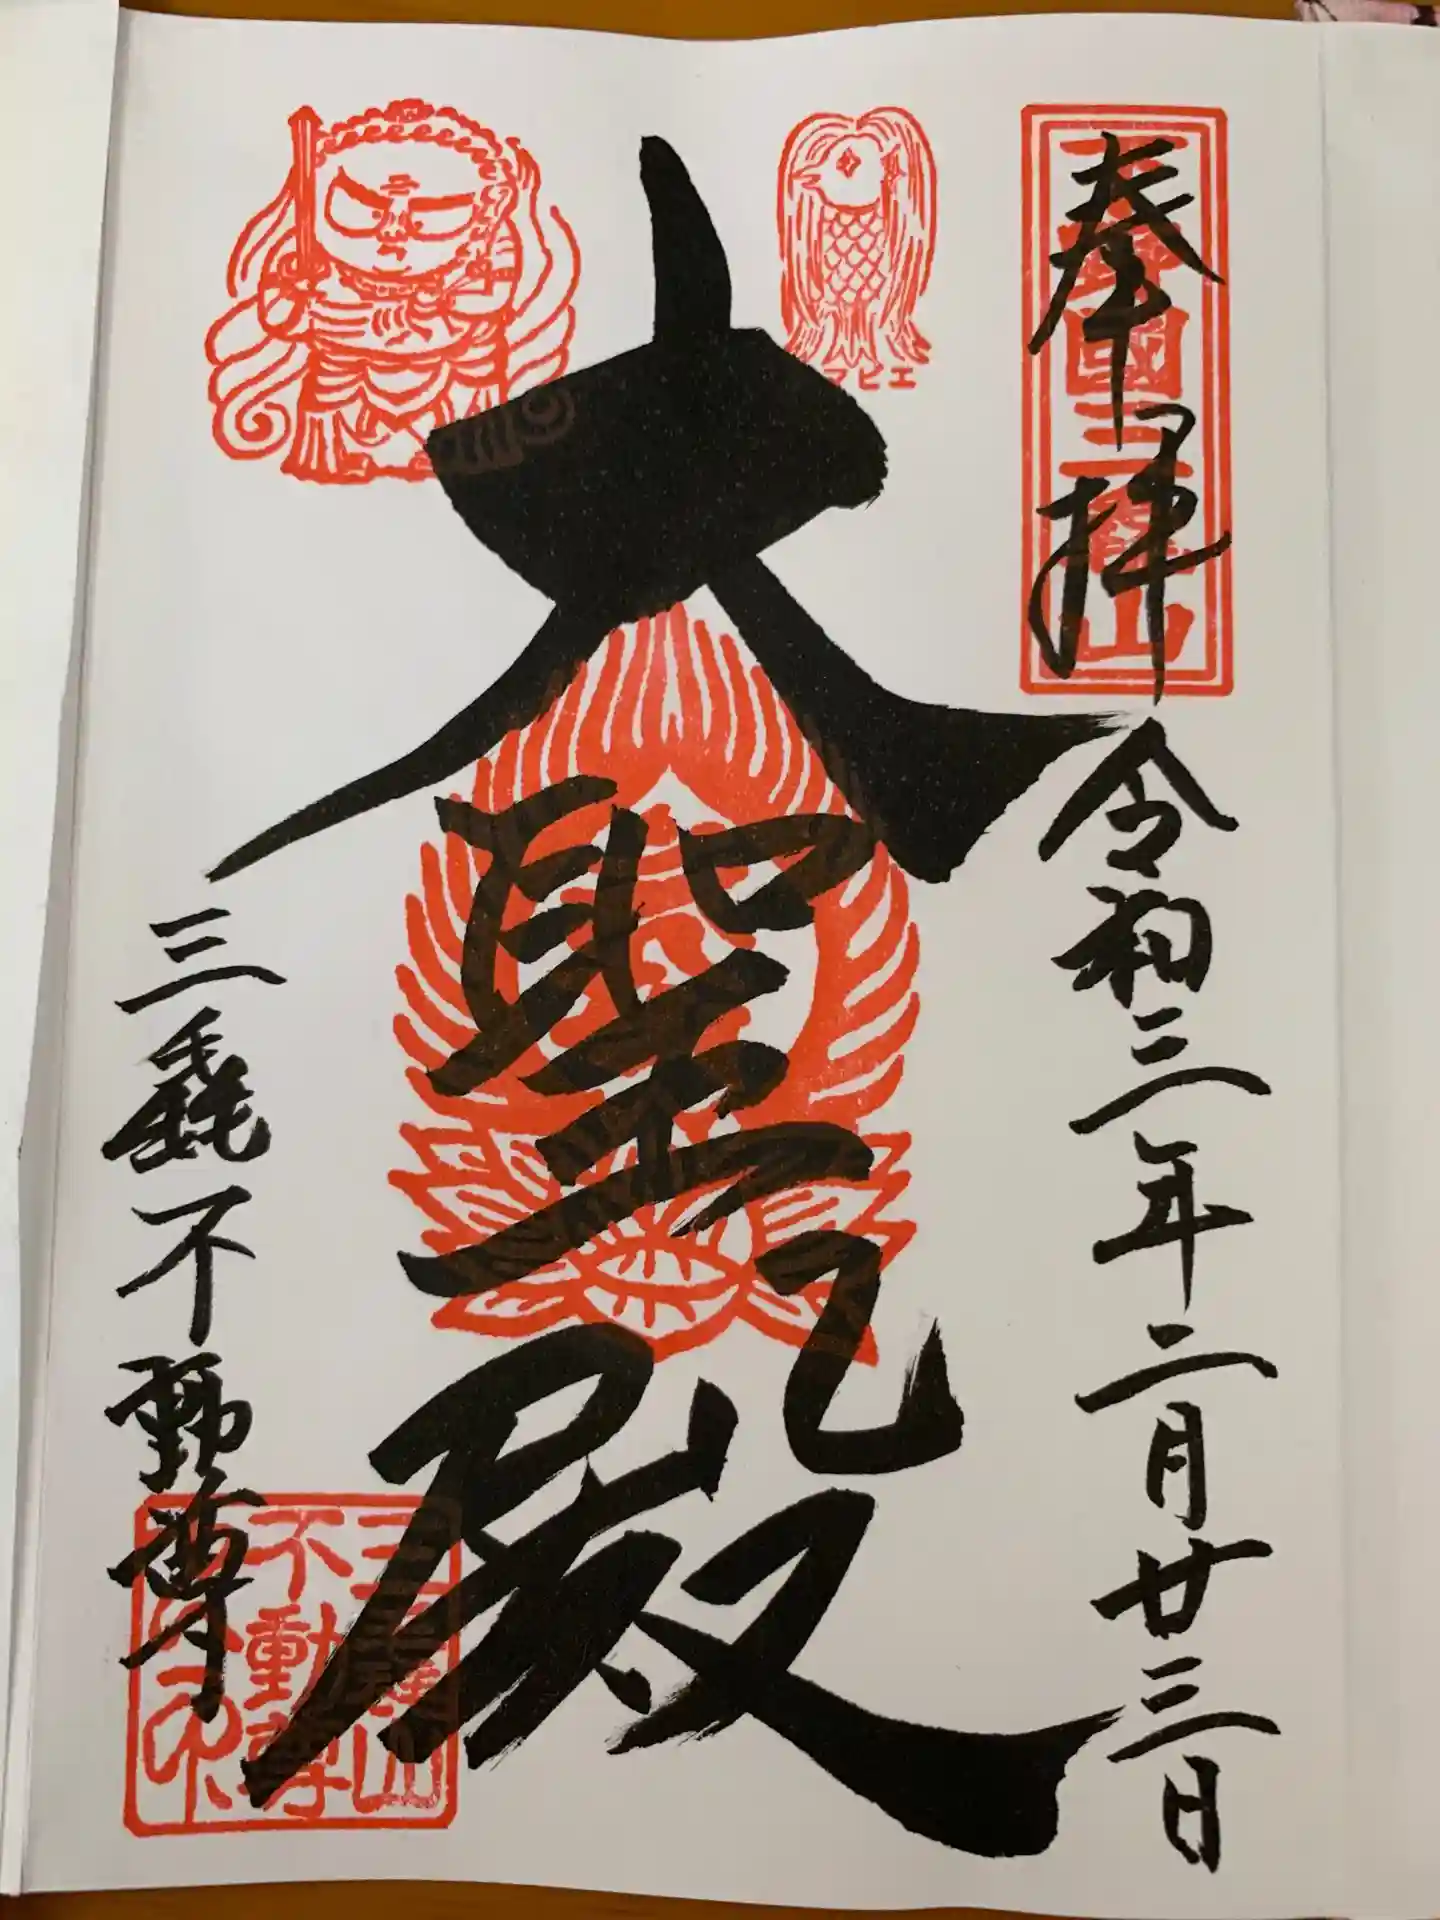 奉拝
令和三年二月廿三日
大聖殿
三毳不動尊
アマビエ
三毳山
不動尊